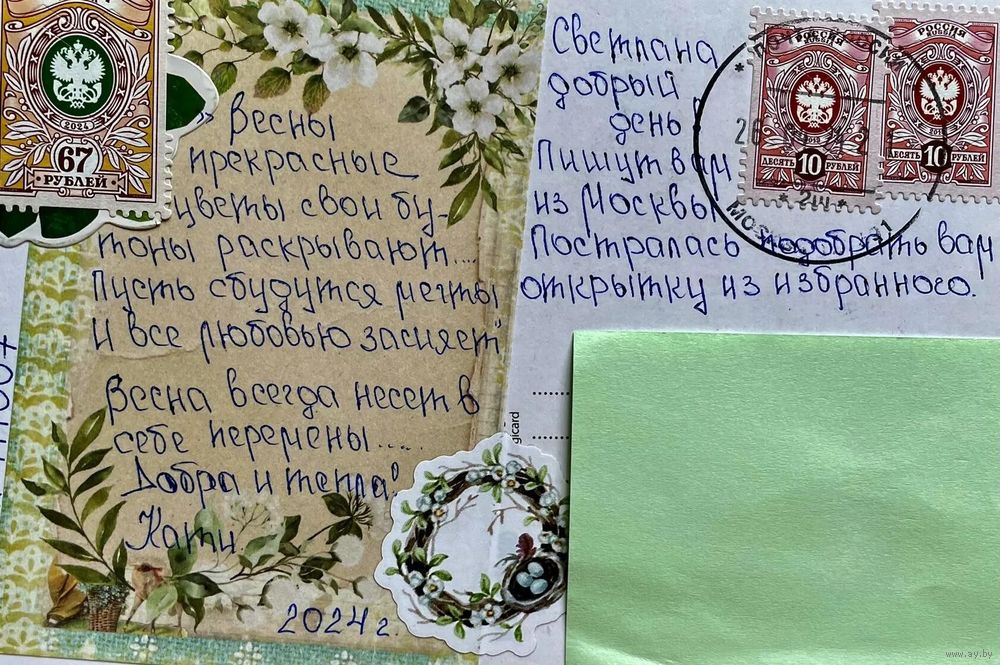 " Весны
прекрасные
цветы свои бу-
тоны раскрывают...
Пусть сбудутся мечты
И все любовью засияет"
Весна всегда несет в
себе перемены....
Добра и тепла!
Кати
2024 г.
Светлана
добрый
день!
Пишут вам
из Москвы
Постралась подобрать вам
открытку из избранного.
2024
67
РУБЛЕЙ
РОССИЯ
ROSSIA
ДЕСЯТЬ 10 РУБЛЕЙ
РОССИЯ
ROSSIA
ДЕСЯТЬ 10 РУБЛЕЙ
gicard
www.ay.by